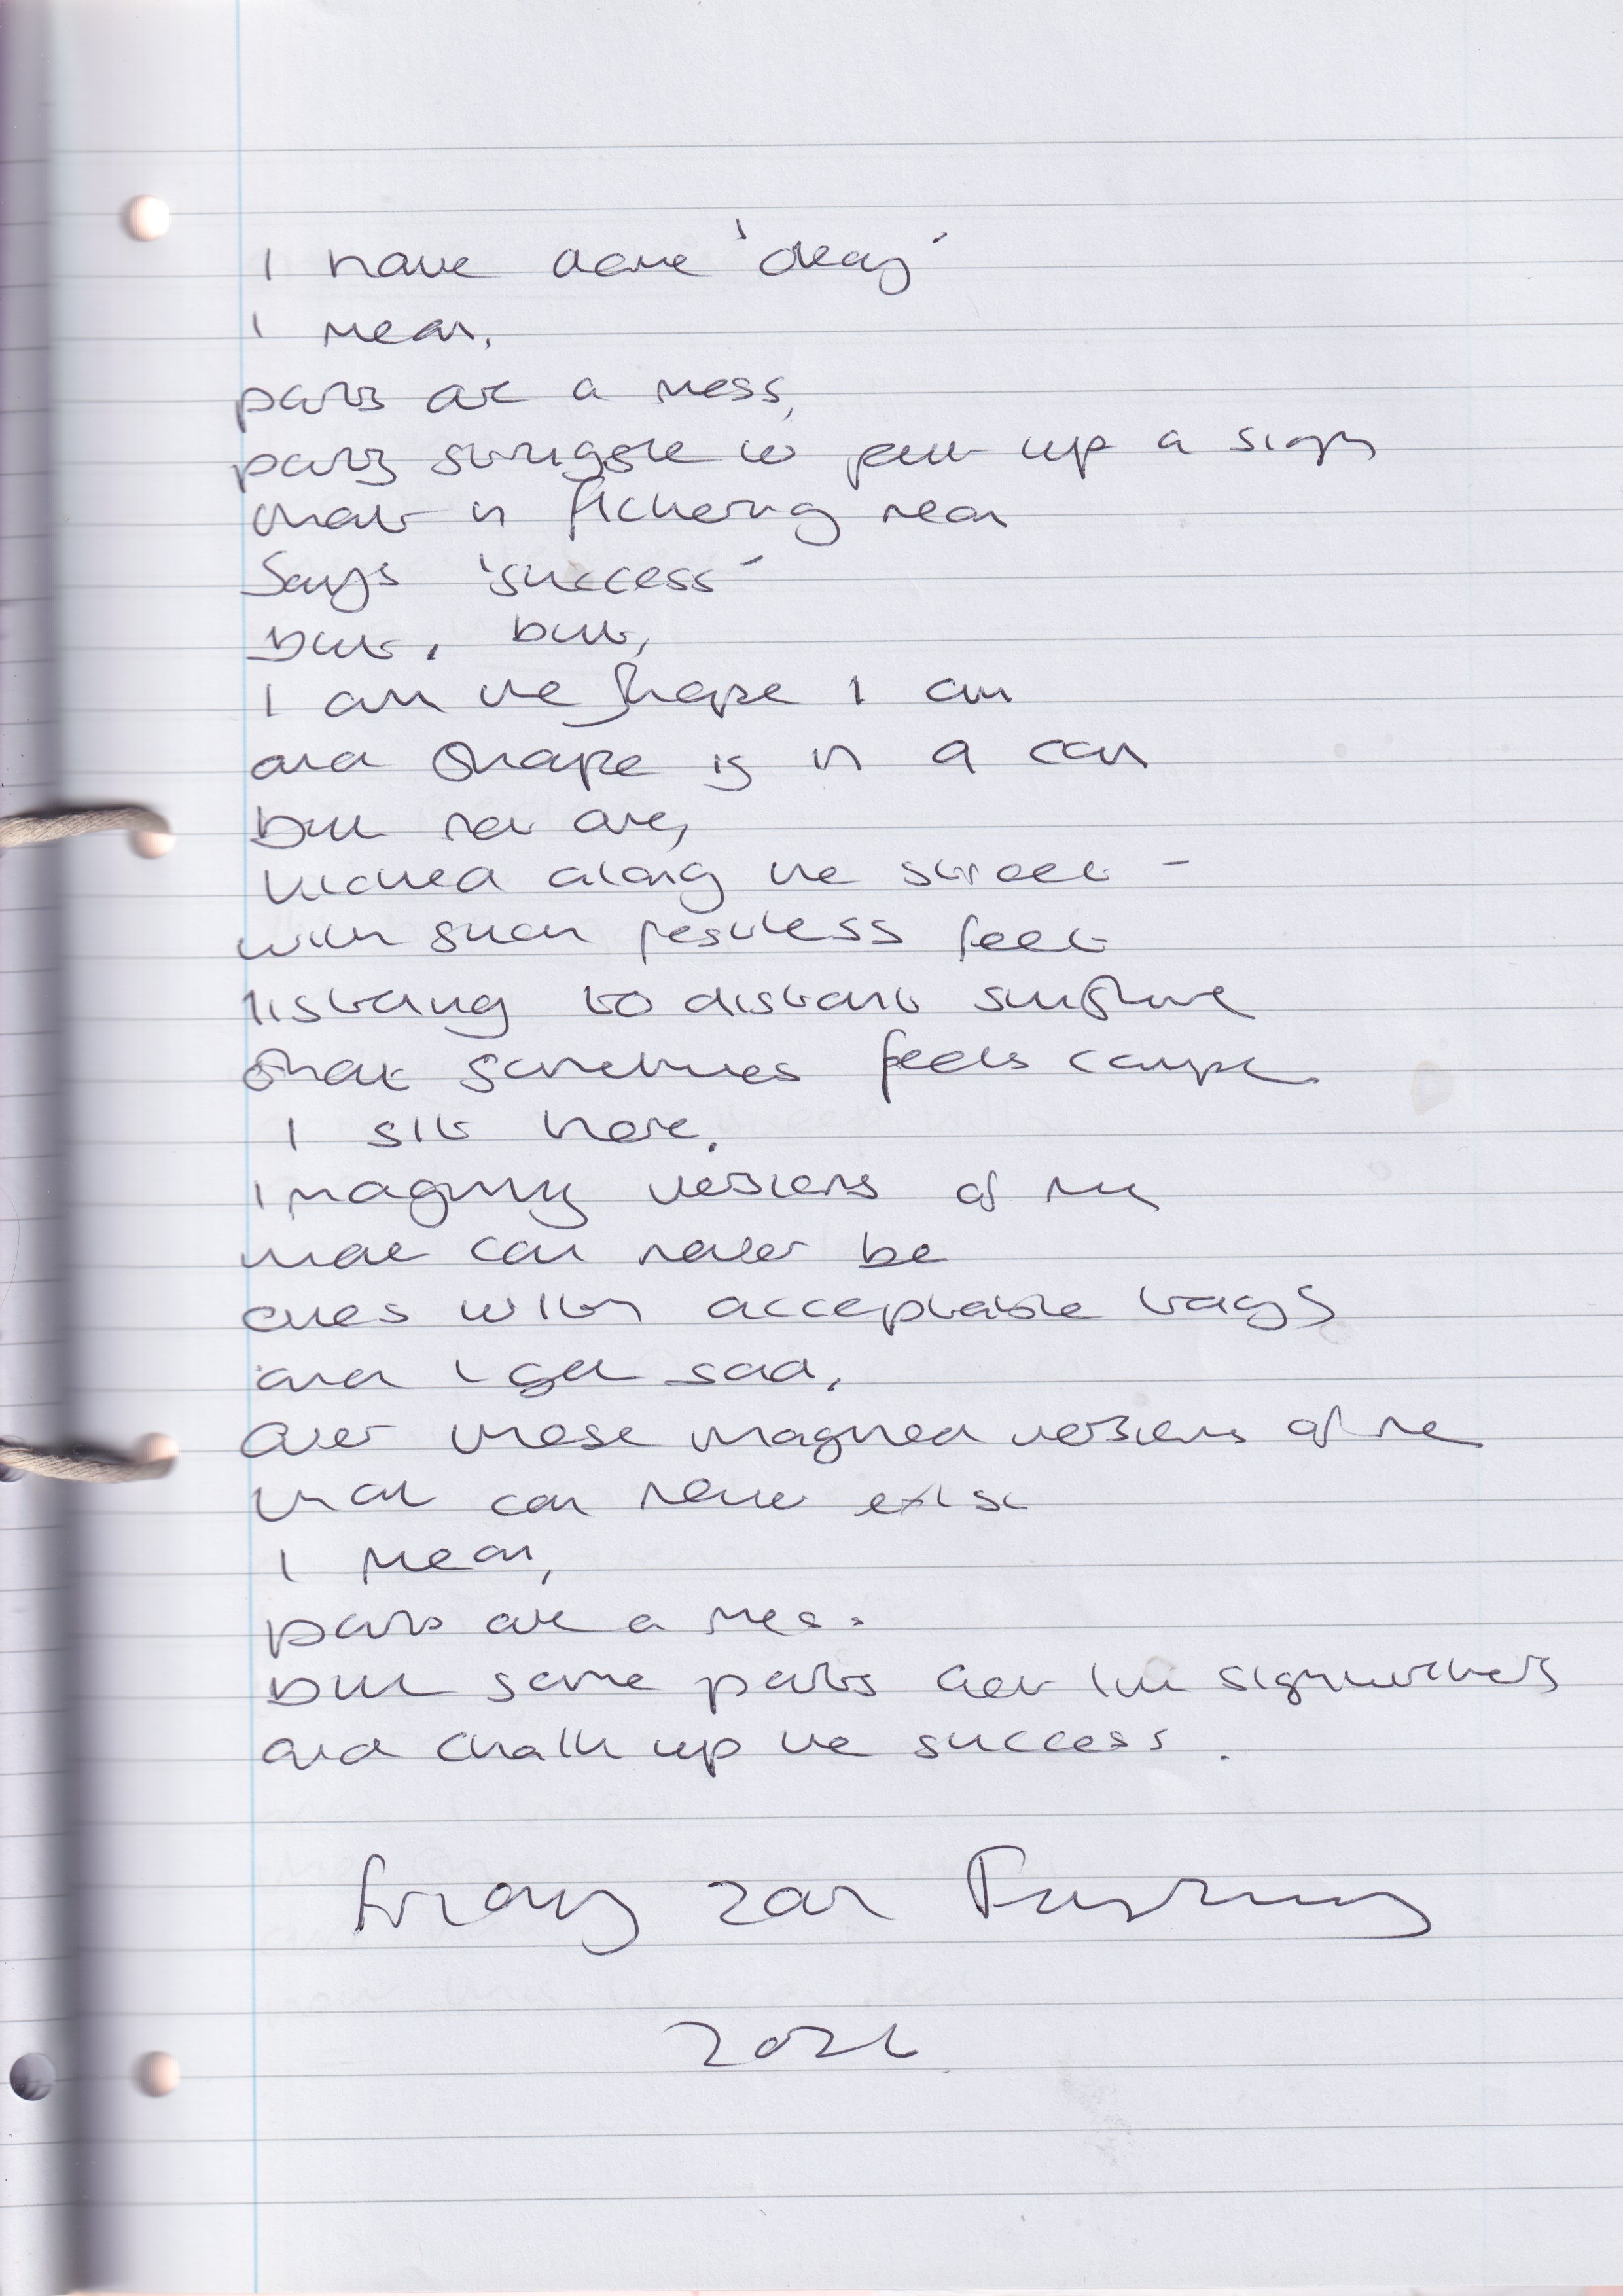 I have done 'okay'
I mean,
parts are a mess,
parts struggle to put up a sign
that in flickering neon
Says 'success'
but, but,
I am the shape I am
and shape is in a can
but not one,
kicked along the street -
with such restless feet
listening to distant sunshine
that sometimes feels
I sit here,
imagining versions of me
that can never be
ones with acceptable tags
and I get sad,
over these imagined versions of me
that can never exist
I mean,
parts are a mess.
but some parts act like signwriters
and chalk up the success.
2026